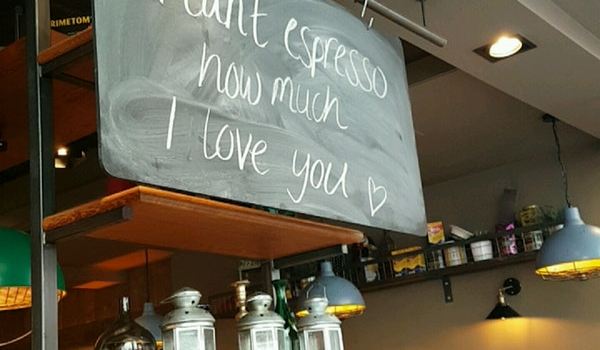 RIMETOM
cant espresso
how much
I love you ♡